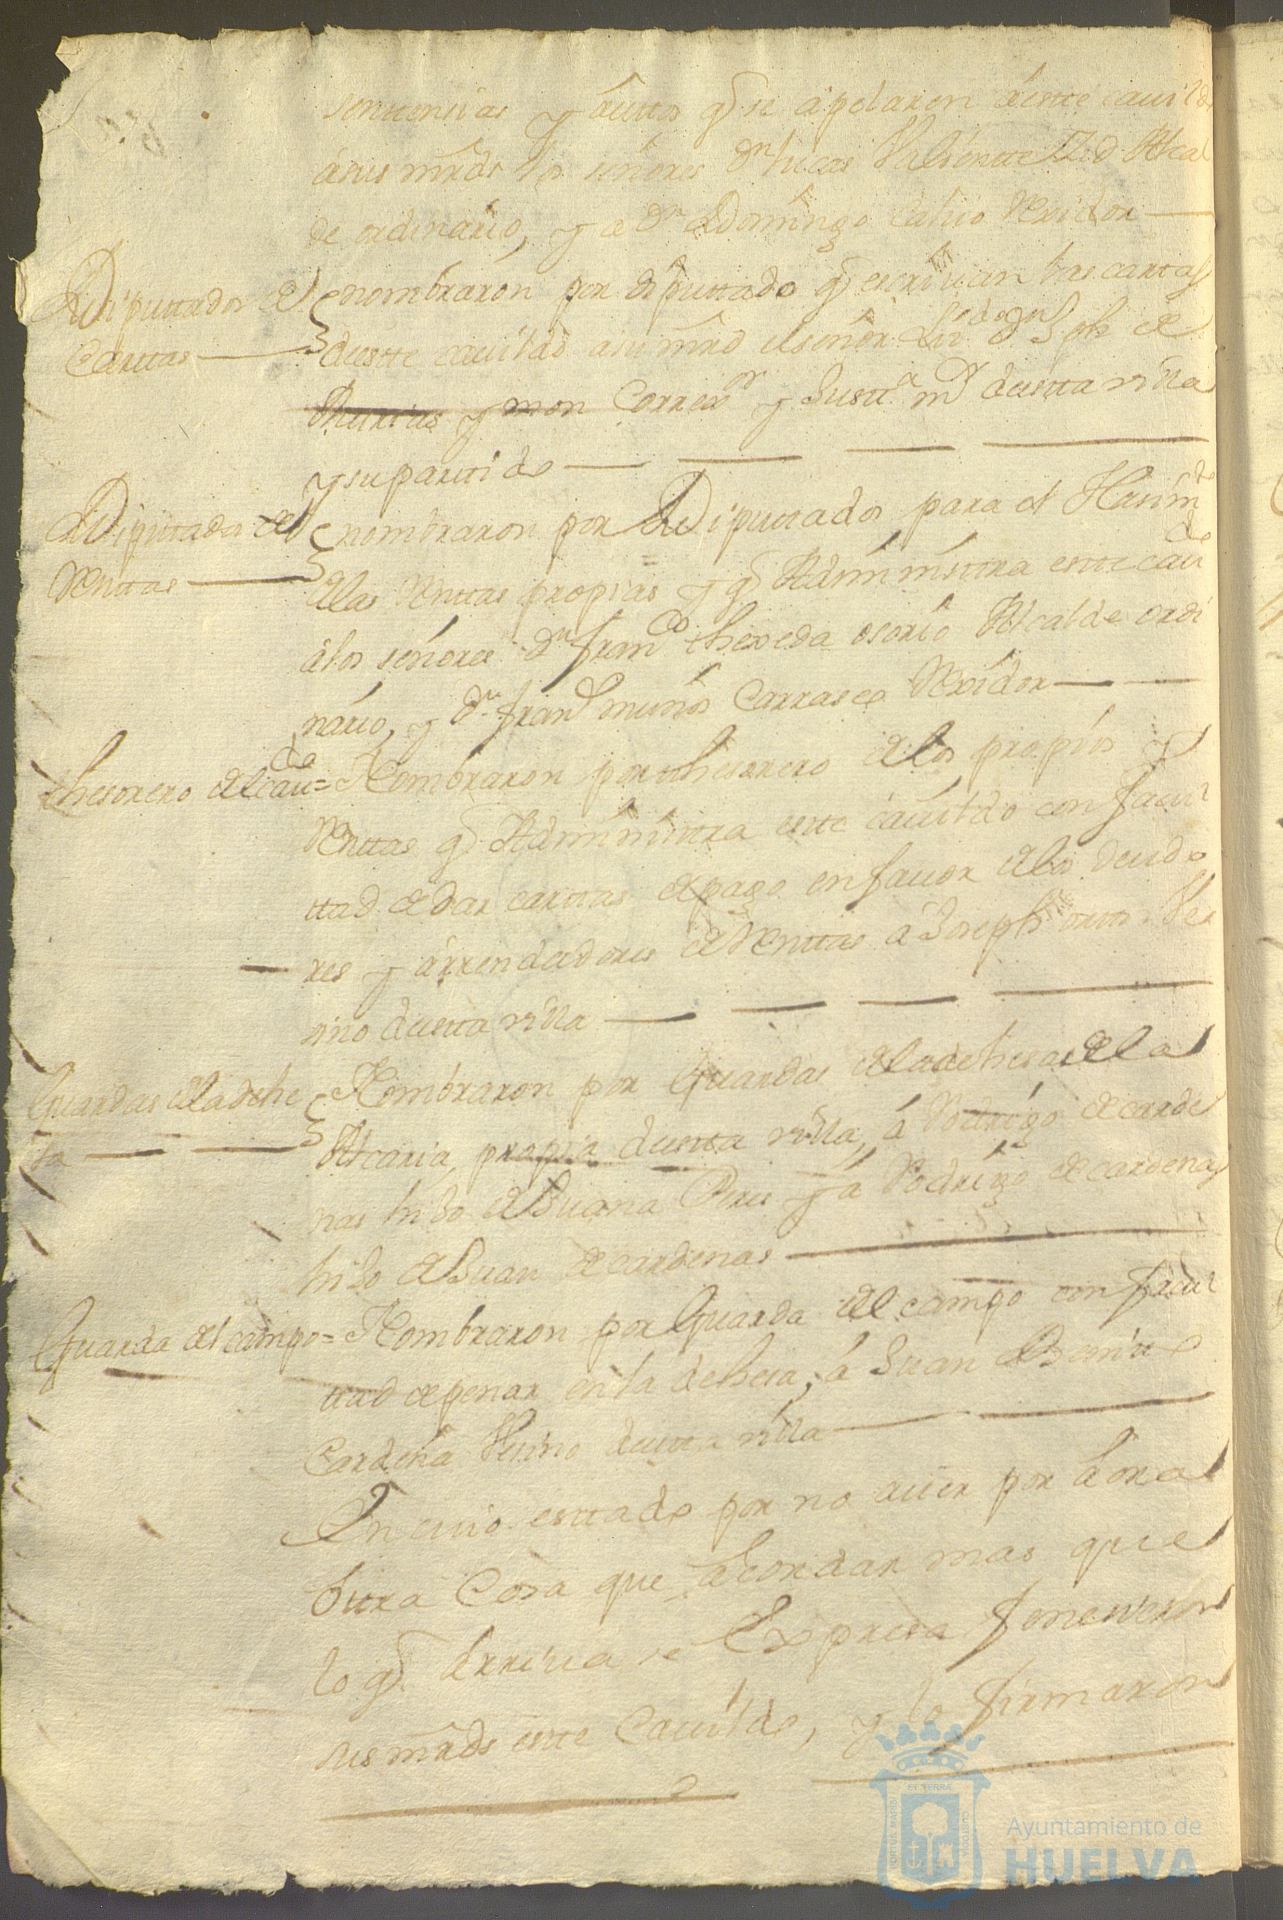 senttensias y auttos q̃ se apelaren a este cauildo
a sus mrds los señores Dn lucas Alcal
de ordinario, y a Dn Domingo Caluo Rexidor
Diputtados de
Carttas
nombraron por diputtado q̃ escriuan las cartas
deste cauildo a su mrd el señor Lizdo Dn Joph de
y mon Correxor y Justta mor desta villa
y su partido
Diputados de
Renttas
nombraron por Diputtados para el Hasimto
de las Renttas propias y q̃ Administtra este caudo
a los señores Dn franco thexeda osorio Alcalde ordi
nario, y Dn franco muños Carrasco Rexidor
thesorero del caudo = Nombraron por thesorero de los propios y
Renttas q̃ Administtra este cauildo con facul
ttad de dar carttas de pago en fauor de los deudo
res y arrendadores de Renttas a Joseph ortis Ve
sino desta villa
Guardas de la dehe
sa
Nombraron por Guardas de la dehesa de la
Alcaria, propia desta villa, a Rodrigo de carde
nas hijo de Juana Peres y a Rodrigo de cardenas
hijo de Juan de cardenas
Guarda del campo = Nombraron por Guarda del campo con facul
ttad de penar en la dehesa, a Juan Benitto
Cardeña Vesino desta villa
En cuio esttado por no auer por ahora
ottra Cosa que acordar mas que
lo q̃ arriua se Expresa fenesieron
sus mrds este Cauildo, y lo firmaron
Ayuntamiento de
HUELVA